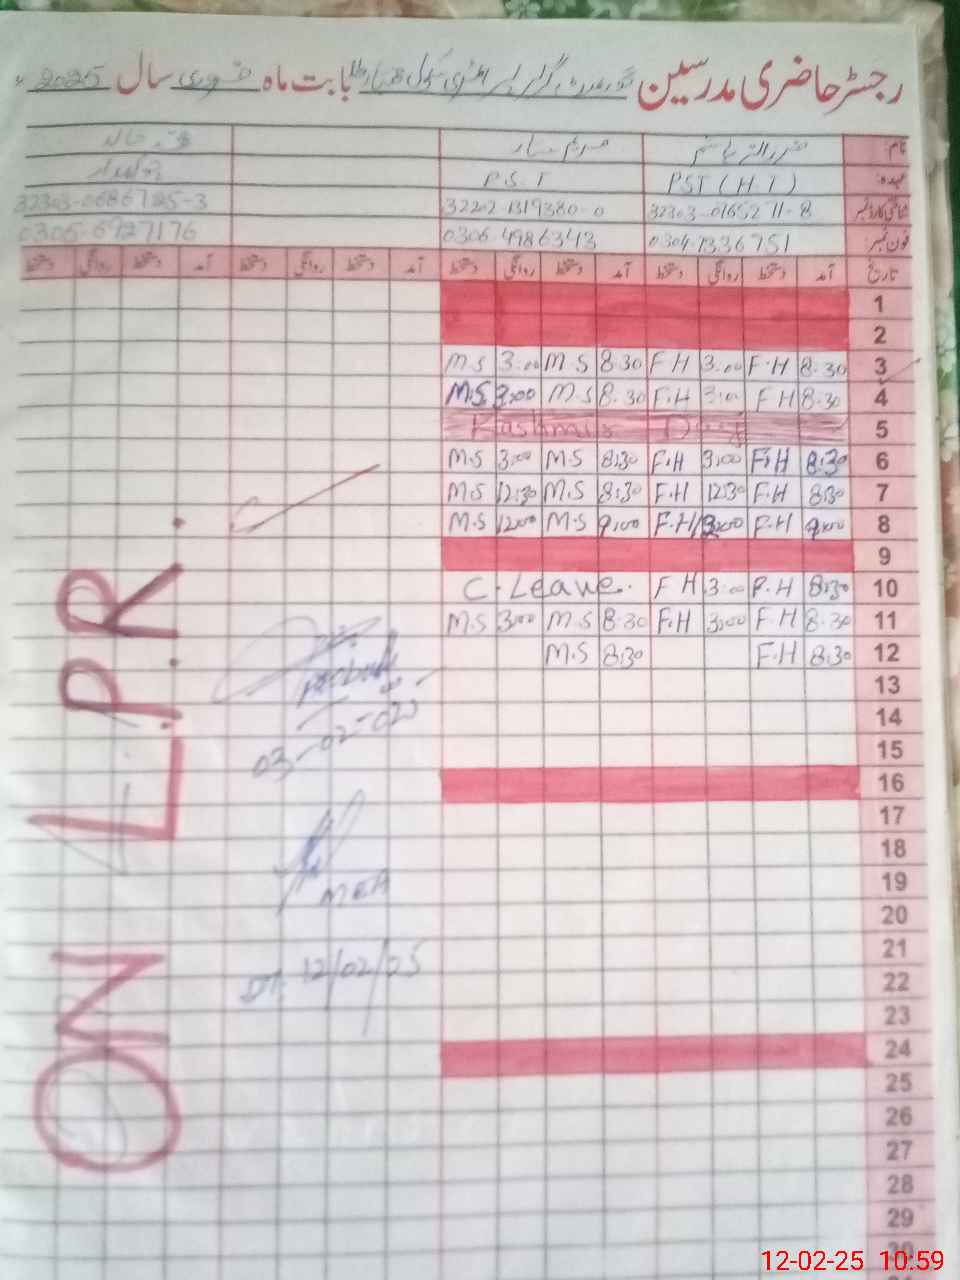 رجسٹر حاضری مدرسین گورنمنٹ گرلز پرائمری سکول بابت ماہ فروری سال 2025ء
نام:
عہدہ: PST (H.T) P.S.T
شناختی کارڈ نمبر 32303-0165271-8 32202-1319380-0 32303-0686725-3
فون نمبر: 0304-7336751 0306-4986343 0306-6927176
تاریخ آمد دستخط روانگی دستخط آمد دستخط روانگی دستخط آمد دستخط روانگی دستخط آمد دستخط روانگی دستخط
1
2
M.S 3:00 M.S 8:30 F.H 3:00 F.H 8:30 3
M.S 3:00 M.S 8:30 F.H 3:00 F.H 8:30 4
Kashmir Day 5
M.S 3:00 M.S 8:30 F.H 3:00 F.H 8:30 6
M.S 12:30 M.S 8:30 F.H 12:30 F.H 8:30 7
M.S 12:00 M.S 9:00 F.H F.H 9:00 8
9
C. Leave. F.H 3:00 F.H 8:30 10
M.S 3:00 M.S 8:30 F.H 3:00 F.H 8:30 11
M.S 8:30 F.H 8:30 12
13
14
15
16
17
18
19
20
21
22
23
24
25
26
27
28
29
30
ON L.P.R.
03-02-025
MEA
DT. 12/02/25
12-02-25 10:59